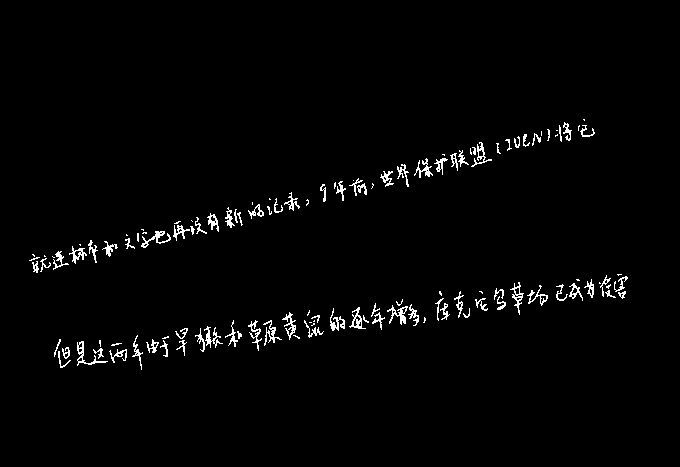 就连标本和文字也再没有新的记录。9年前,世界保护联盟(IUCN)将它
但是这两年由于旱獭和草原黄鼠的逐年增多,库克它乌草场已成为侵害